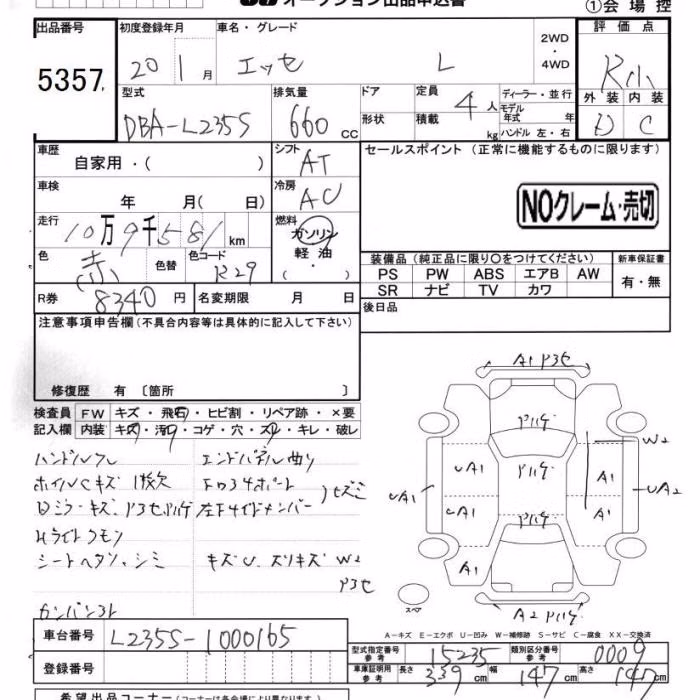 オークション出品申込書
①会場控
出品番号 初度登録年月 車名・グレード 評価点
5357 20年1月 エッセ L 2WD・4WD R小
型式 排気量 ドア 定員 ディーラー・並行 外装 内装
DBA-L235S 660cc 形状 積載 4人 kg モデル年式 年 ハンドル 左・右 D C
車歴 シフト セールスポイント（正常に機能するものに限ります）
自家用・( ) AT
車検 冷房
年 月( 日) AC
NOクレーム・売切
走行 燃料
10万9千581km ガソリン
軽油
( ・ )
色 色替 色コード
赤 R29
装備品（純正品に限り○をつけてください） 新車保証書
PS PW ABS エアB AW 有・無
SR ナビ TV カワ
R券 8340円 名変期限 月 日
後日品
注意事項申告欄（不具合内容等は具体的に記入して下さい）
修復歴 有〔箇所 〕
検査員 FW キズ・飛石・ヒビ割・リペア跡・×要
記入欄 内装 キズ・汚れ・コゲ・穴・スレ・キレ・破レ
ハンドルスレ エンドパネル曲り
ホイルCキズ 1枚欠
シートヘタリ、シミ キズU スリキズ W2
カンバン跡
A1
W2
UA1 A1 UA2
UA1 A1
A1
A2
スペア
A-キズ E-エクボ U-凹み W-補修跡 S-サビ C-腐食 XX-交換済
車台番号 L235S-1000165
登録番号
型式指定番号 参考 15235 類別区分番号 参考 0009
車庫証明用 参考 長さ 339cm 幅 147cm 高さ 147cm
希望出品コーナー（コーナーは各会場により異なります）